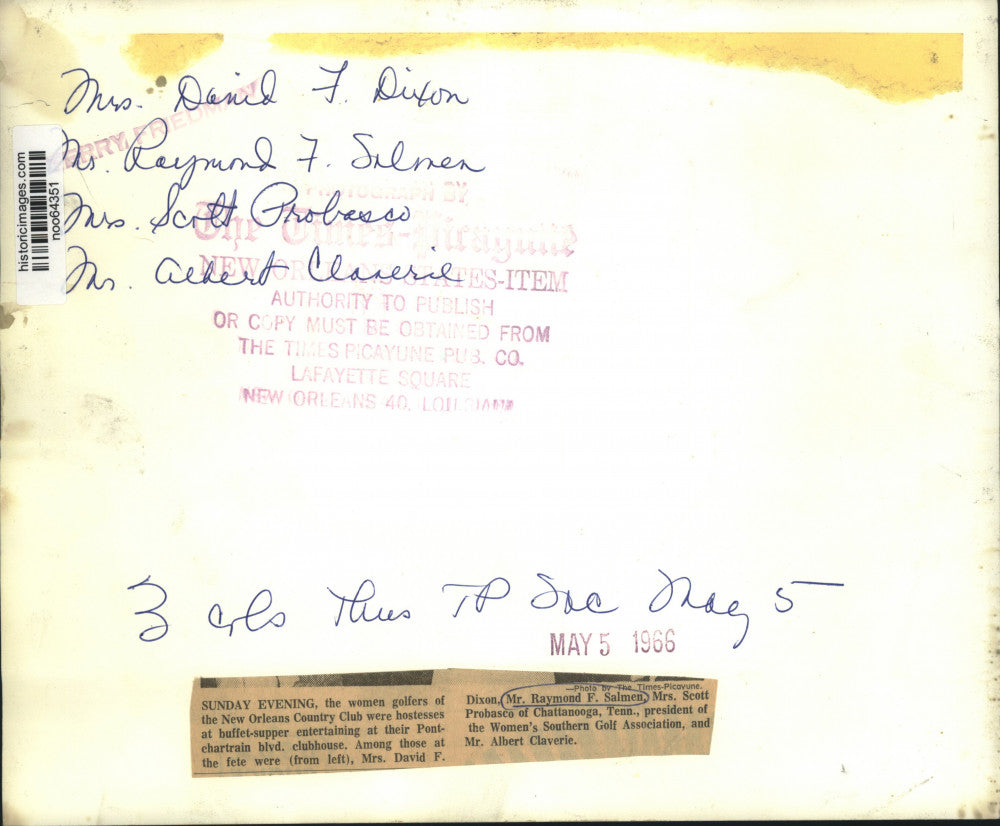 Mrs. David F. Dixon
JERRY FRIEDMAN
Mr. Raymond F. Salmen
Mrs. Scott Probasco
Mr. Albert Claverie
historicimages.com
noo64351
PHOTOGRAPH BY
The Times-Picayune
NEW ORLEANS STATES-ITEM
AUTHORITY TO PUBLISH
OR COPY MUST BE OBTAINED FROM
THE TIMES PICAYUNE PUB. CO.
LAFAYETTE SQUARE
NEW ORLEANS 40, LOUISIANA
3 cols Thurs TP Soc May 5
MAY 5 1966
SUNDAY EVENING, the women golfers of
the New Orleans Country Club were hostesses
at buffet-supper entertaining at their Pont-
chartrain blvd. clubhouse. Among those at
the fete were (from left), Mrs. David F.
—Photo by The Times-Picayune.
Dixon, Mr. Raymond F. Salmen, Mrs. Scott
Probasco of Chattanooga, Tenn., president of
the Women's Southern Golf Association, and
Mr. Albert Claverie.